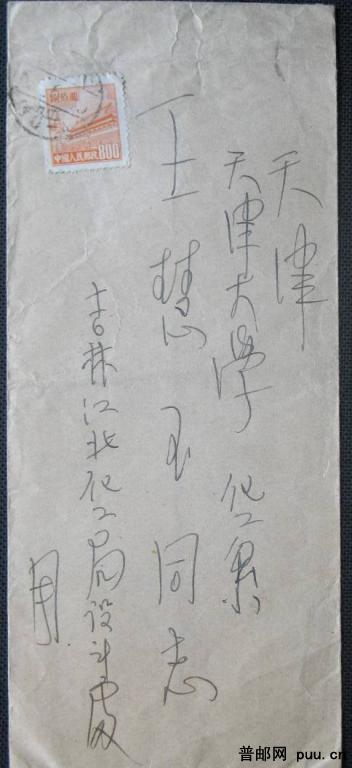 天津
天津大学 化工系
王慧玉同志
吉林江北化工局设计处
周
捌佰圆
中國人民郵政
800
普邮网 puu.cn